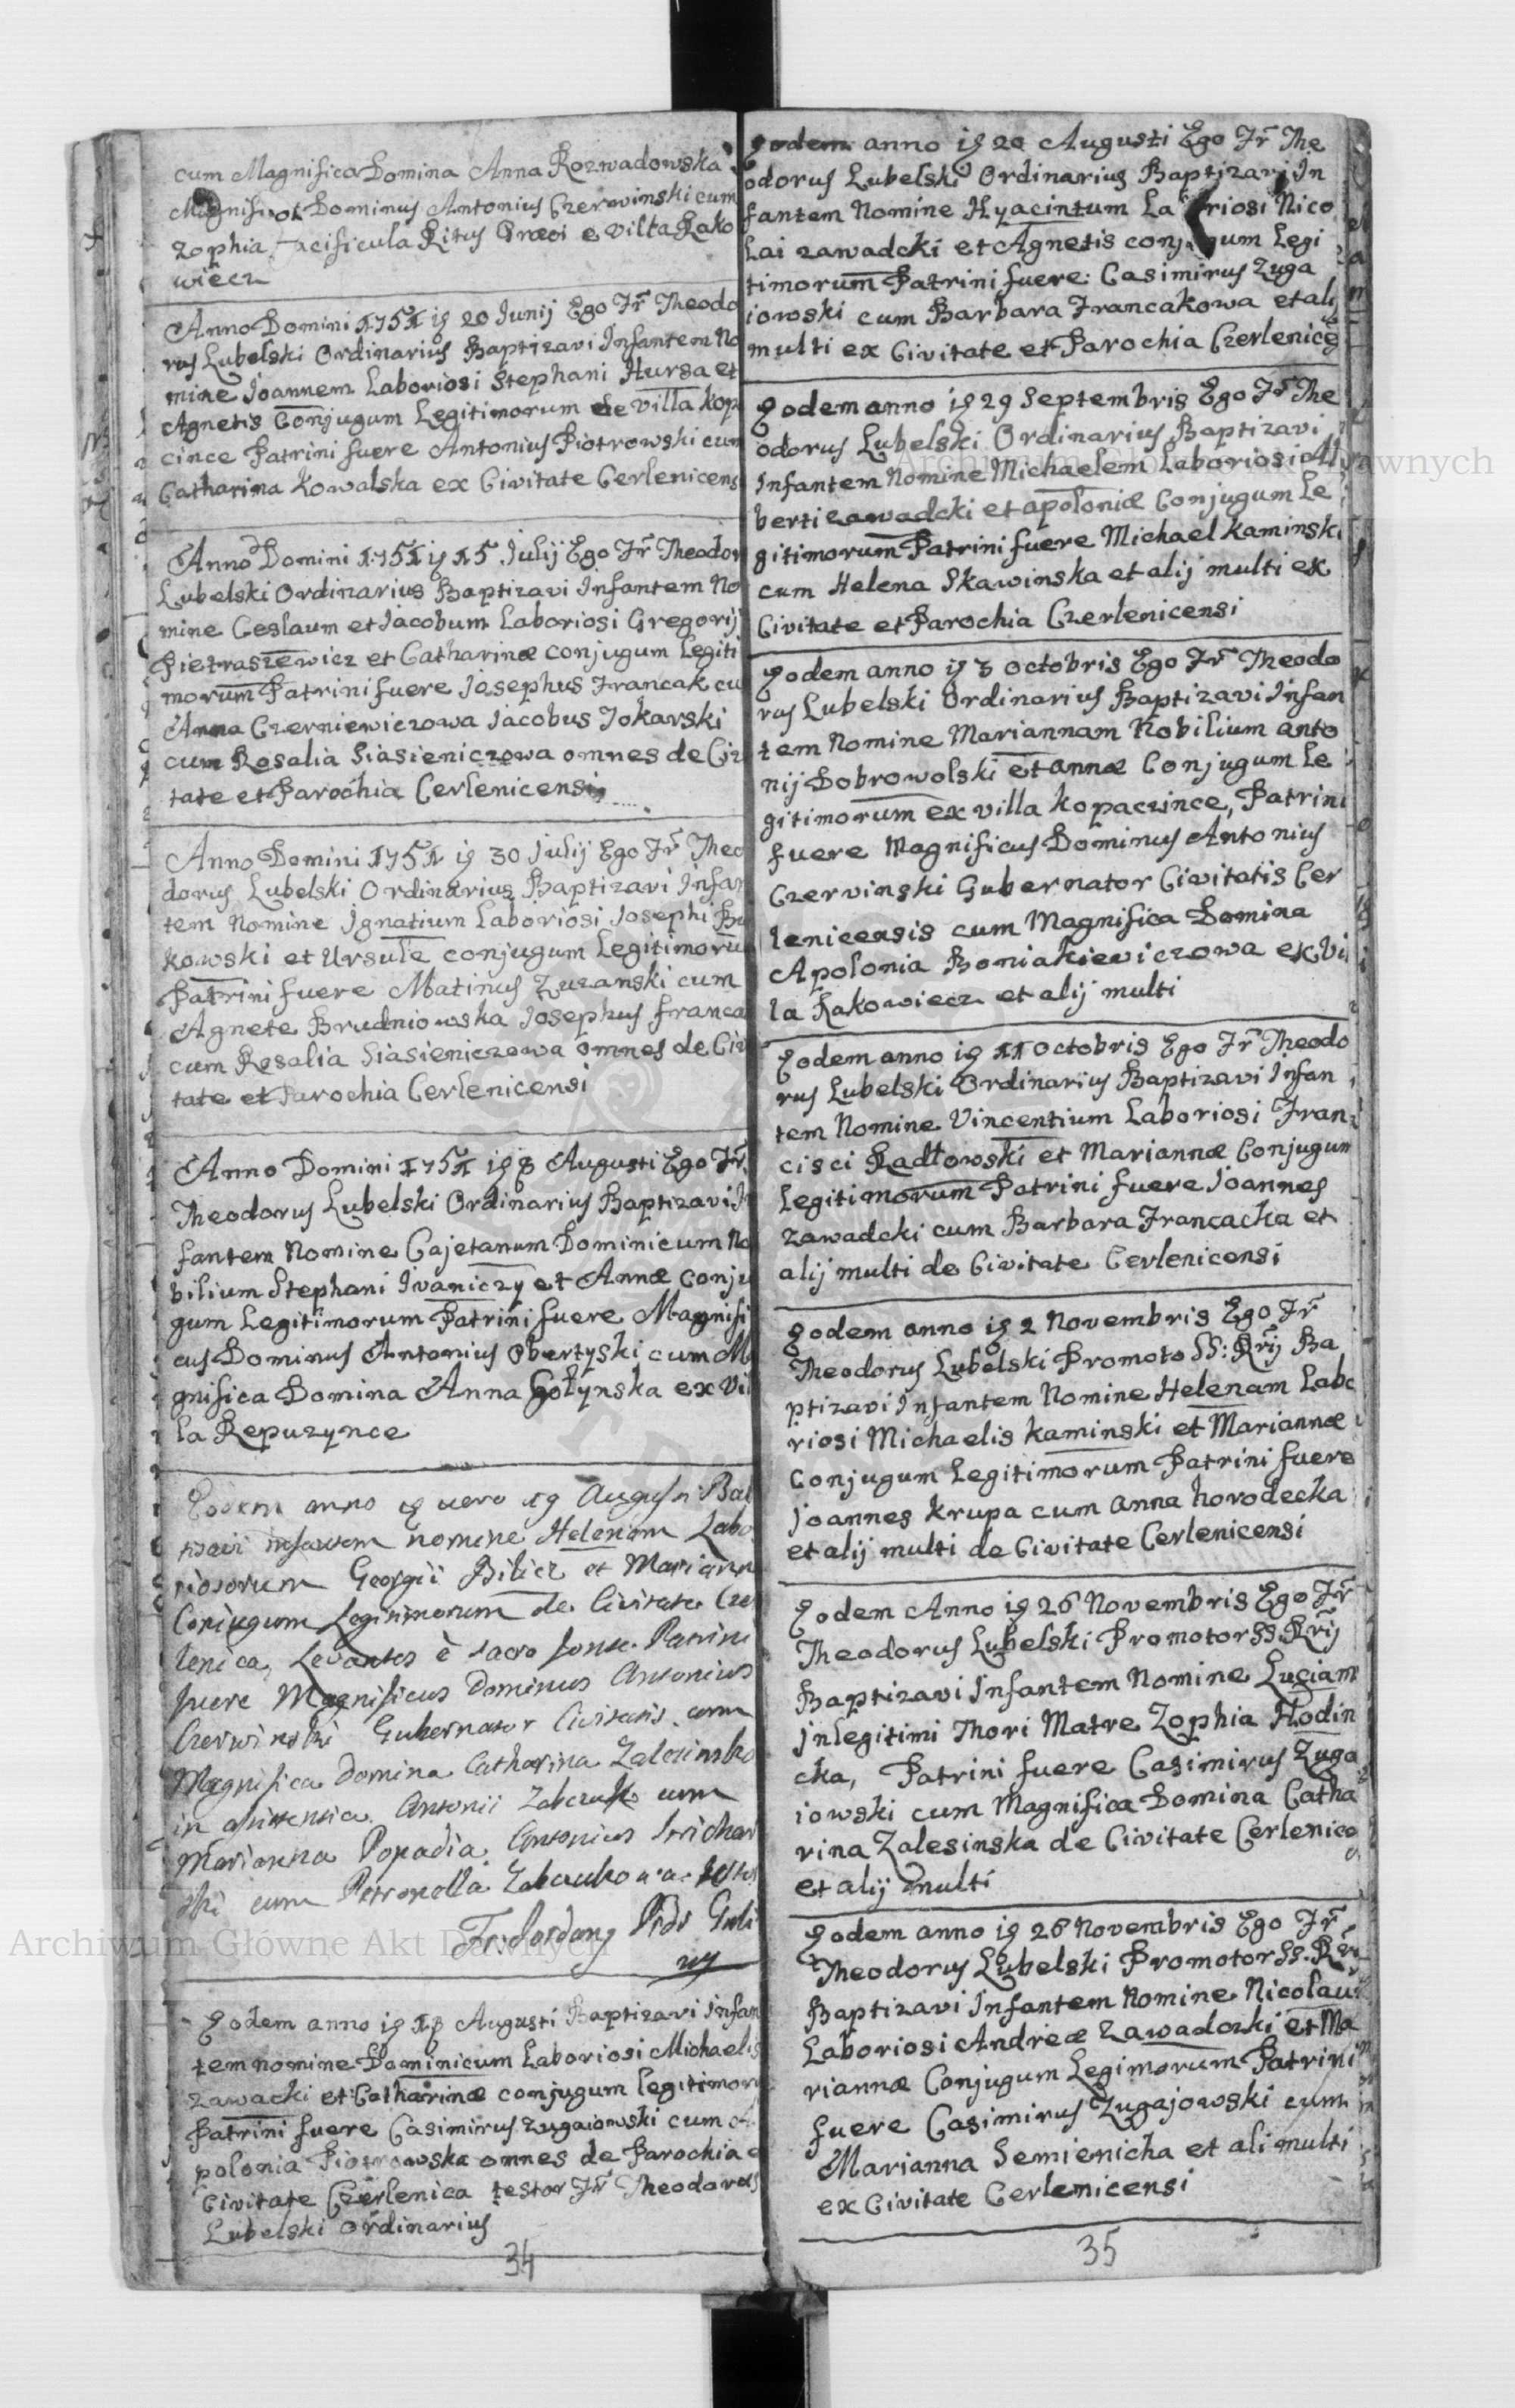 cum Magnifica Domina Anna Rozwadowska
Dominus Antonius Czerwinski cum
Zophia Pacificula Ritus Græci e villa Rako
wiecz
Anno Domini 1751 ig 20 Junij Ego Fr̃ Theodo
rus Lubelski Ordinarius Baptizavi Infantem No
mine Joannem Laboriosi Stephani Hursa et
Agnetis Conjugum Legitimorum de villa Kop
cince Patrini fuere Antonius Piotrowski cum
Catharina Kowalska ex Civitate Cerlenicens
Anno Domini 1751 ig 15 Julij Ego Fr̃ Theodor
Lubelski Ordinarius Baptizavi Infantem No
mine Ceslaum et Jacobum Laboriosi Gregorij
Pietraszewicz et Catharinæ conjugum Legiti
morum Patrini fuere Josephus Francak cu
Anna Czerniewiczowa Jacobus Tokarski
cum Rosalia Siasieniczowa omnes de Civ
tate et Parochia Cerlenicensi
Anno Domini 1751 ig 30 Julij Ego Fr̃ Theo
dorus Lubelski Ordinarius Baptizavi Infan
tem Nomine Ignatium Laboriosi Josephi Bu
kowski et Ursule conjugum Legitimoru
Patrini fuere Matinus Zuranski cum
Agnete Brudniowska Josephus franca
cum Rosalia Siasieniczowa omnes de Civ
tate et Parochia Cerlenicensi
Anno Domini 1751 ig 8 Augusti Ego Fr̃
Theodorus Lubelski Ordinarius Baptizavi In
fantem Nomine Cajetanum Dominicum No
bilium Stephani Ivaniczy et Annæ Conju
gum Legitimorum Patrini fuere Magnifi
cus Dominus Antonius Obertyski cum Ma
gnifica Domina Anna Gołynska ex Vil
la Repuzynce
Eodem anno ig vero 19 Augusti Bat
tizavi infantem nomine Helenam Labo
riosorum Georgii Bilicz et Mariann
Conjugum Legitimorum de Civitate Czer
lenica, Levantes è sacro fonte Patrini
fuere Magnificus Dominus Antonius
Czerwinski Gubernator Civitatis cum
Magnifica Domina Catharina Zalesinska
in assistentia Antonii Zabczuk cum
Marianna Popadia Antonius
ski cum Petronella
Fr. Jordany
Eodem anno ig 18 Augusti Baptizavi Infan
tem nomine Dominicum Laboriosi Michaelis
Zawacki et Catharinæ conjugum legitimoru
Patrini fuere Casimirus Zugaiowski cum A
polonia Piotrowska omnes de Parochia e
Civitate Czerlenica testor Fr̃ Theodorus
Lubelski Ordinarius
34
Eodem anno ig 20 Augusti Ego Fr̃ The
odorus Lubelski Ordinarius Baptizavi In
fantem Nomine Hyacintum La riosi Nico
lai zawadcki et Agnetis conjugum Legi
timorum Patrini fuere: Casimirus Zuga
iowski cum Barbara Francakowa et alij
multi ex Civitate et Parochia Czerlenice
Eodem anno ig 29 Septembris Ego Fr̃ The
odorus Lubelski Ordinarius Baptizavi
Infantem Nomine Michaelem Laboriosi Al
berti zawadcki et apoloniæ Conjugum Le
gitimorum Patrini fuere Michael Kaminski
cum Helena Skawinska et alij multi ex
Civitate et Parochia Czerlenicensi
Eodem anno ig 3 Octobris Ego Fr̃ Theodo
rus Lubelski Ordinarius Baptizavi Infan
tem Nomine Mariannam Nobilium anto
nij Dobrowolski et annæ Conjugum Le
gitimorum ex villa Kopaczince, Patrini
fuere Magnificus Dominus Antonius
Czervinski Gubernator Civitatis Cer
lenicensis cum Magnifica Domina
Apolonia Boniakieviczowa ex Vi
la Rakowiecz et alij multi
Eodem anno ig 11 Octobris Ego Fr̃ Theodo
rus Lubelski Ordinarius Baptizavi Infan
tem Nomine Vincentium Laboriosi Fran
cisci Radłowski et Mariannæ Conjugum
Legitimorum Patrini fuere Joannes
Zawadcki cum Barbara Francacka et
alij multi de Civitate Cerlenicensi
Eodem anno ig 2 Novembris Ego Fr̃
Theodorus Lubelski Promoto SS: Rrij Ba
ptizavi Infantem Nomine Helenam Labo
riosi Michaelis Kaminski et Mariannæ
Conjugum Legitimorum Patrini fuere
Joannes Krupa cum Anna horodecka
et alij multi de Civitate Cerlenicensi
Eodem Anno ig 26 Novembris Ego Fr̃
Theodorus Lubelski Promotor SS. Rrij
Baptizavi Infantem Nomine Luciam
Inlegitimi Thori Matre Zophia Hodin
cka, Patrini fuere Casimirus Zuga
iowski cum Magnifica Domina Catha
rina Zalesinska de Civitate Cerlenice
et alij multi
Eodem anno ig 26 Novembris Ego Fr̃
Theodorus Lubelski Promotor SS. Rrij
Baptizavi Infantem Nomine Nicolaum
Laboriosi Andreæ Zawadczki et Ma
riannæ Conjugum Legimorum Patrini
fuere Casimirus Zugajowski cum
Marianna Semienicha et ali multi
ex Civitate Cerlenicensi
35
Archiwum Główne Akt Dawnych
Archiwum Główne Akt Dawnych